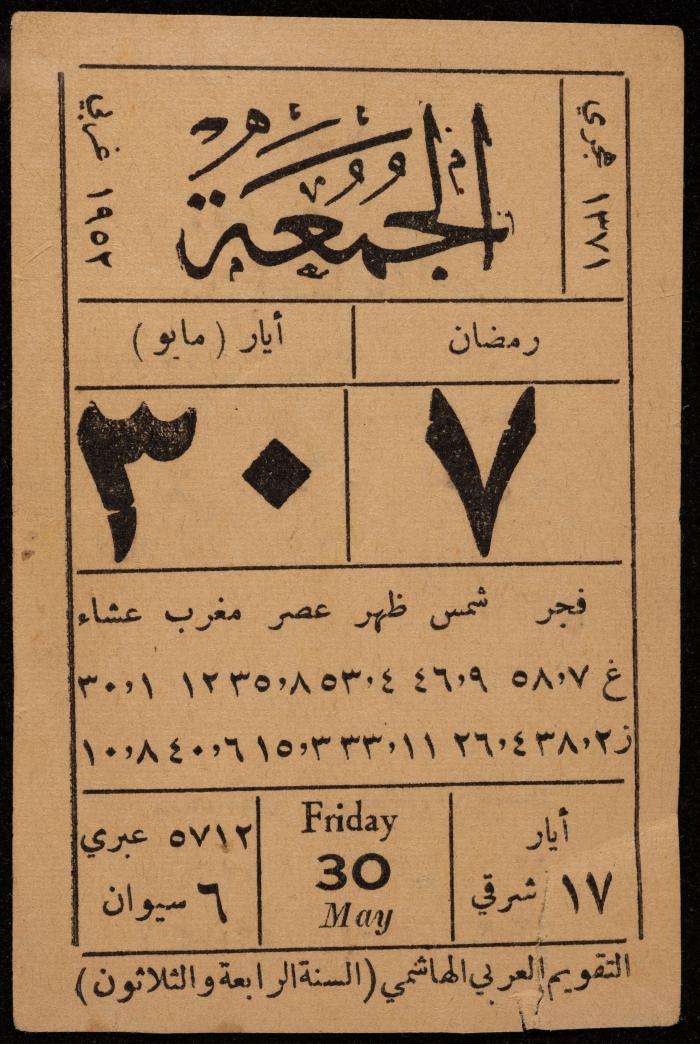 ١٣٧١ هجري
الجمعة
١٩٥٢ غربي
رمضان
أيار ( مايو )
٧
٣٠
فجر شمس ظهر عصر مغرب عشاء
غ ٥٨,٧ ٤٦,٩ ٥٣,٤ ٣٥,٨ ١٢ ٣٠,١
ز ٣٨,٢ ٢٦,٤ ٣٣,١١ ١٥,٣ ٤٠,٦ ١٠,٨
أيار
١٧ شرقي
Friday
30
May
٥٧١٢ عبري
٦ سيوان
التقويم العربي الهاشمي (السنة الرابعة والثلاثون)